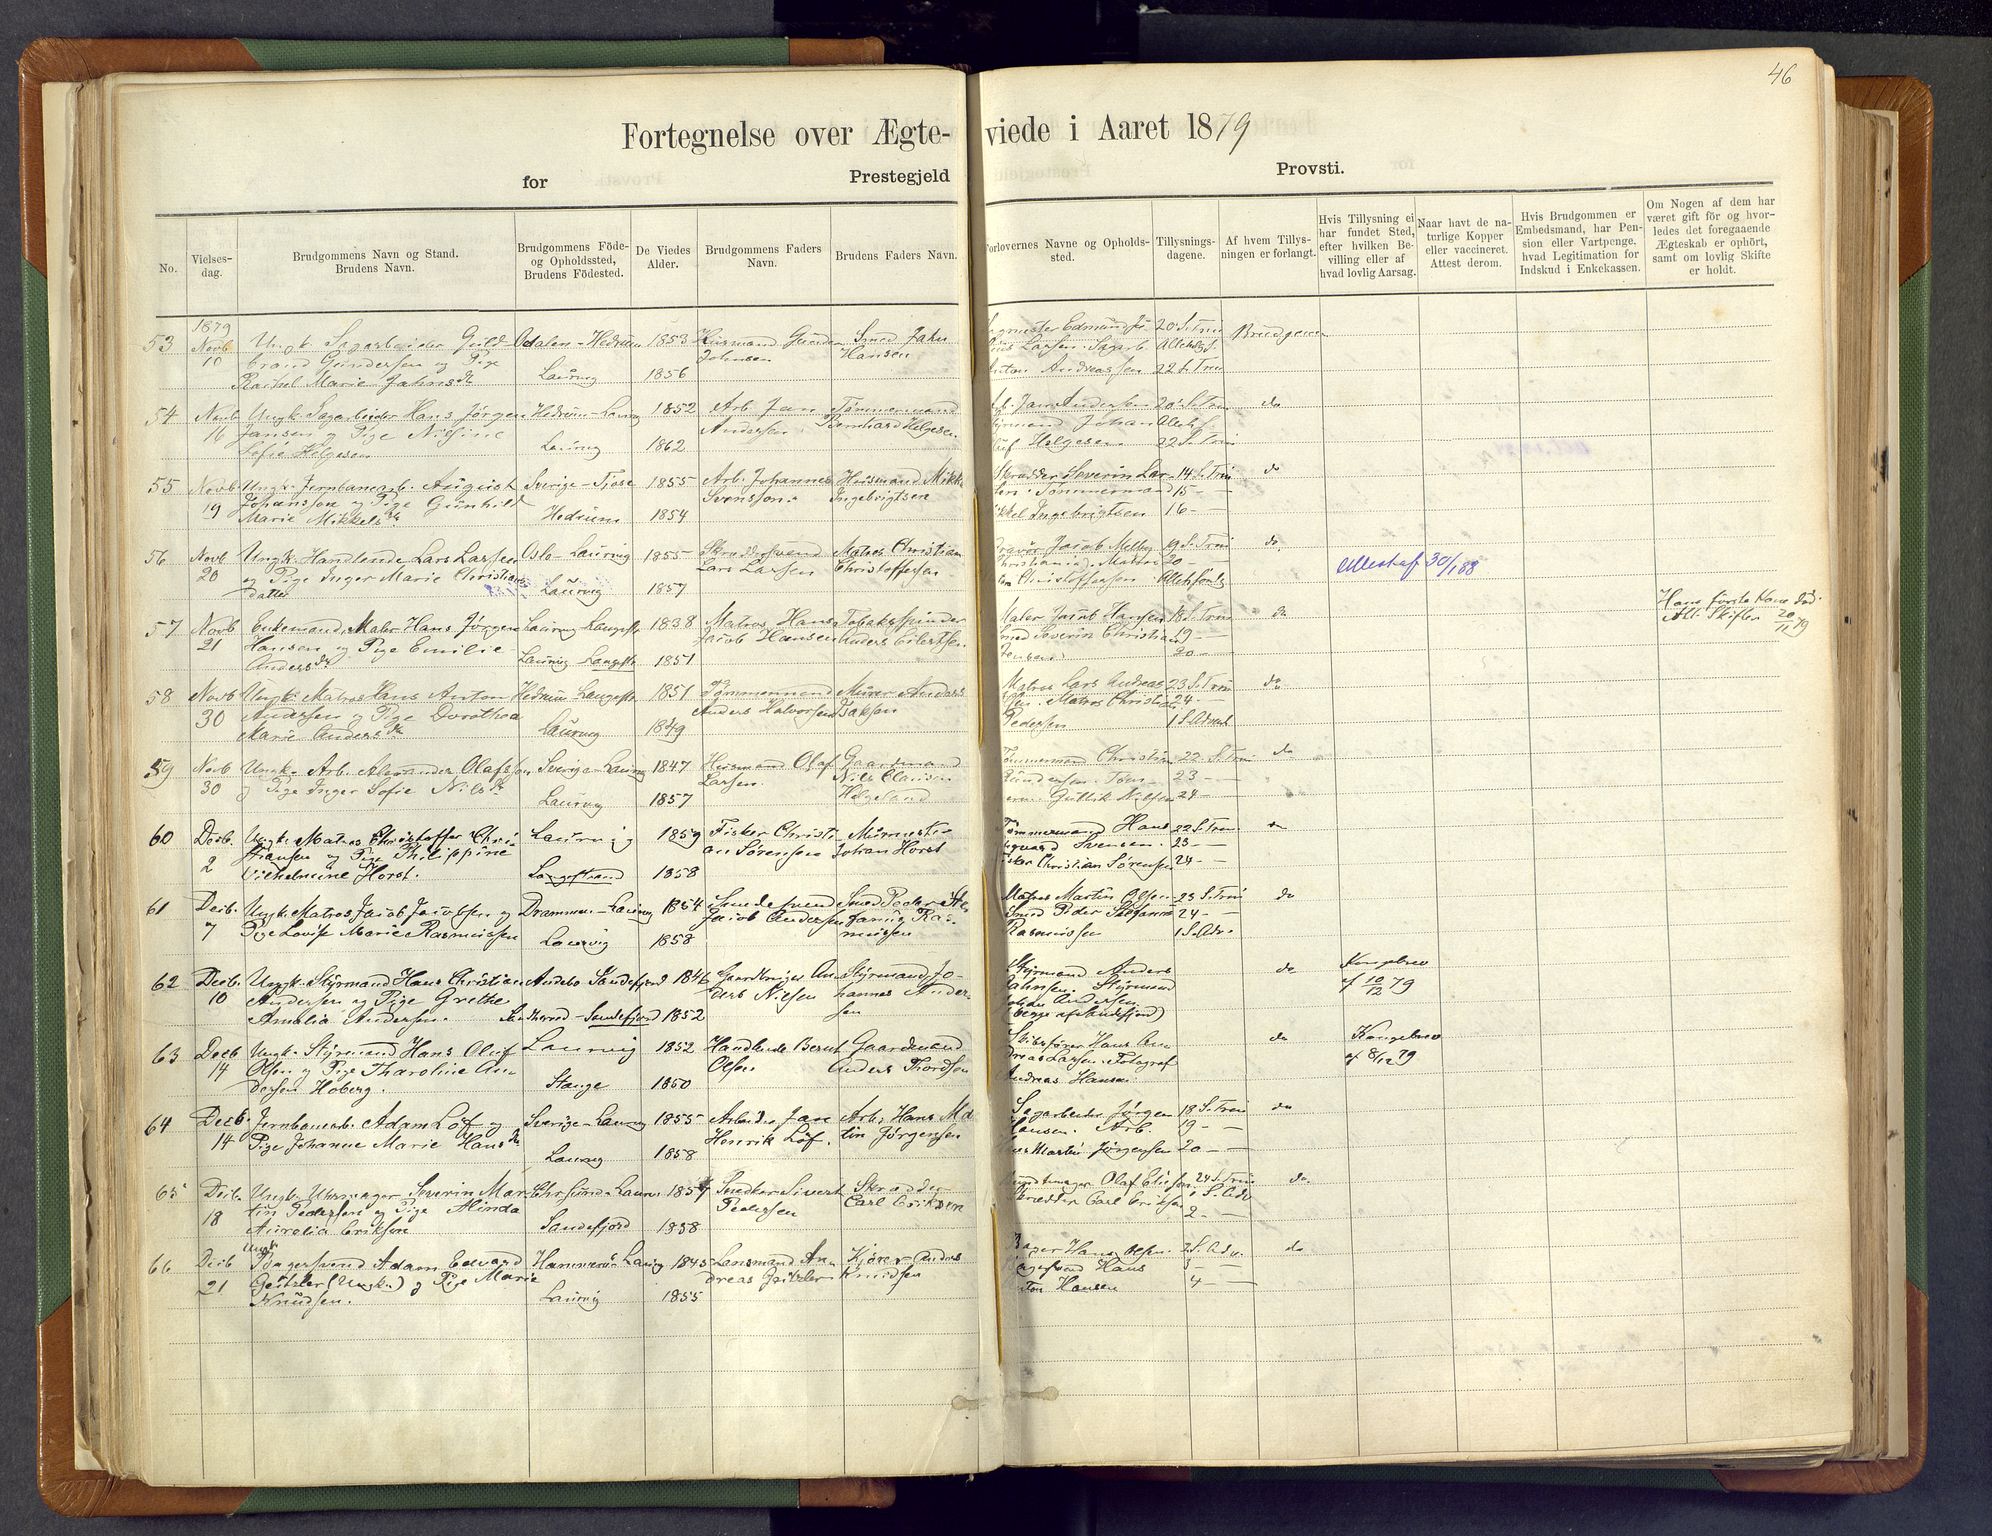 46
Fortegnelse over Ægte- viede i Aaret 1879
for Prestegjeld Provsti.
No.
Vielses-
dag.
Brudgommens Navn og Stand.
Brudens Navn.
Brudgommens Føde-
og Opholdssted,
Brudens Fødested.
De Viedes
Alder.
Brudgommens Faders
Navn.
Brudens Faders Navn.
Forlovernes Navne og Opholds-
sted.
Tillysnings-
dagene.
Af hvem Tillys-
ningen er forlangt.
Hvis Tillysning ei
har fundet Sted,
efter hvilken Be-
villing eller af
hvad lovlig Aarsag.
Naar havt de na-
turlige Kopper
eller vaccineret.
Attest derom.
Hvis Brudgommen er
Embedsmand, har Pen-
sion eller Vartpenge,
hvad Legitimation for
Indskud i Enkekassen.
Om Nogen af dem har
været gift før og hvor-
ledes det foregaaende
Ægteskab er ophørt,
samt om lovlig Skifte
er holdt.
1879
53 Novb 10
Ungk. Sagarbeider Guld-
brand Gundersen og Pige
Rachel Marie Jahnsdr
Odalen - Hedrum
Laurvig
1853
1856
Husmand Gunder
Johnsen
Smed Jahn
Hansen
Larsen. Sagarb.
Anton Andreassen
20 S. Trin
22 S. Trin
Brudgommen
54 Novb 16
Ungk. Sagarbeider Hans Jørgen
Jansen og Pige Nilsine
Sofie Helgesen
Hedrum - Laurvig
Laurvig
1852
1862
Arb. Jan
Andersen
Tømmermand
Bernhard Helgesen
Arb. Jan Andersen
Styrmand Johan
Helgesen
20 S. Trin
22 S. Trin
do
55 Novb 19
Ungk. Jernbanearb. August
Johansson og Pige Gunhild
Marie Mikkelsdr
Sverige - Tjose
Hedrum
1855
1854
Arb. Johannes
Svensson.
Husmand Mikkel
Ingebrigtsen
Skrædder Severin Lar-
sen. Tømmermand
Mikkel Ingebrigtsen
14 S. Trin
15 -
16 -
do
56 Novb 20
Ungk. Handlende Lars Larsen
og Pige Inger Marie Christians-
datter
Oslo - Laurvig
Laurvig
1855
1857
Skræddersvend
Lars Larsen
Matros Christian
Christoffersen
Gravør Jacob Melby
Christiania. Matros
Christoffersen
19 S. Trin
20 -
do.
Attest af 30/1 88
57 Novb 21
Enkemand, Maler Hans Jørgen
Hansen og Pige Emilie
Andersdr
Laurvig Langestr
Laurvig Langestr
1838
1851
Matros Hans
Jacob Hansen
Tobakspinder
Anders Eilertsen
Maler Jacob Hansen
Smed Severin Christian
Jensen.
18 S. Trin
19 -
20 -
do
Hans første Kone død.
Att. Skifter 20/11 79
58 Novb 30
Ungk. Matros Hans Anton
Andersen og Pige Dorothea
Marie Andersdr
Hedrum Langestr
Laurvig
1851
1849
Tømmermand
Anders Halvorsen
Murer Anders
Isaksen
Matros Lars Andreas
Matros Christian
Pedersen
23 S. Trin
24 -
1 S. Advent
do
59 Novb 30
Ungk. Arb. Alexander Olafsson
og Pige Inger Sofie Nilsdr
Sverige - Laurvig
Laurvig
1847
1857
Husmand Olaf
Larsen.
Gaardmand
Nils Clausen
Helgeland
Tømmermand Christian
Gundersen. Tøm-
Gullik Nilsen
22 S. Trin
23 -
24 -
do
60 Decb. 2
Ungk. Matros Christoffer Chri-
stiansen og Pige Philippine
Vilhelmine Horst.
Laurvig
Langestrand
1859
1858
Fisker Christi-
an Sørensen
Johan Horst
Tømmermand Hans
Svensen.
Fisker Christian Sørensen
22 S. Trin
23 -
24 -
do
61 Decb. 7
Ungk. Matros Jacob Jacobsen og
Pige Lovise Marie Rasmussen
Drammen - Laurvig
Laurvig
1854
1858
Smedesvend
Jacob Andersen
Smed Peder Ste-
fanus Ras-
mussen
Matros Martin Olsen
Smed Peder Stefanus
Rasmussen
23 S. Trin
24 -
1 S. Adv.
do
62 Decb. 10
Ungk. Styrmand Hans Christian
Andersen og Pige Grethe
Amalia Andersen.
Andebo Sandefjord
Sandeherred - Sandefjord
1846
1852
Gaardbruger An-
ders Nilsen
Styrmand Jo-
hannes Ander-
sen
Styrmand Anders
Jahnsen. Styrmand
Johan Andersen.
(begge af Sandefjord)
do
Kongebrev
af 10/12 79
63 Decb 14
Ungk. Styrmand Hans Oluf
Olsen og Pige Tharoline An-
dersen Hoberg.
Laurvig
Stange
1852
1850
Handlende Bernt
Olsen
Gaardmand
Anders Thordsen
Skibsfører Hans An-
dreas Larsen. Fotograf
Andreas Hansen.
do
Kongebrev
af 8/12 79
64 Decb. 14
Jernbanearb. Adam Löf og
Pige Johanne Marie Hansdr
Sverige - Laurvig
Laurvig
1855
1858
Arbeider Jan
Henrik Löf.
Arb. Hans Mar-
tin Jørgensen
Sagarbeider Jørgen
Hansen. Arb.
Hans Martin Jørgensen
18 S. Trin
19 -
20 -
do
65 Decb. 18
Ungk. Uhrmager Severin Mar-
tin Pedersen og Pige Alinda
Aurelia Eriksen
Chrsund - Laurv.
Sandefjord
1857
1858
Snedker Sivert
Pedersen
Skrædder
Carl Eriksen
Olaf
Skrædder Carl Eriksen
24 S. Trin
1 S. Adv
2 -
do
66 Decb 21
Ungk
Bagersvend Adam Edvard
Geitzler (Ungk.) og Pige Marie
Knudsen.
Hammerø Laurvig
Laurvig
1845
1855
Lensmand An-
dreas Geitzler
Kjører Anders
Knudsen
Bager Hans Olsen.
Bagersvend Hans
Anton Hansen
2 S. Adv.
3 -
4 -
do